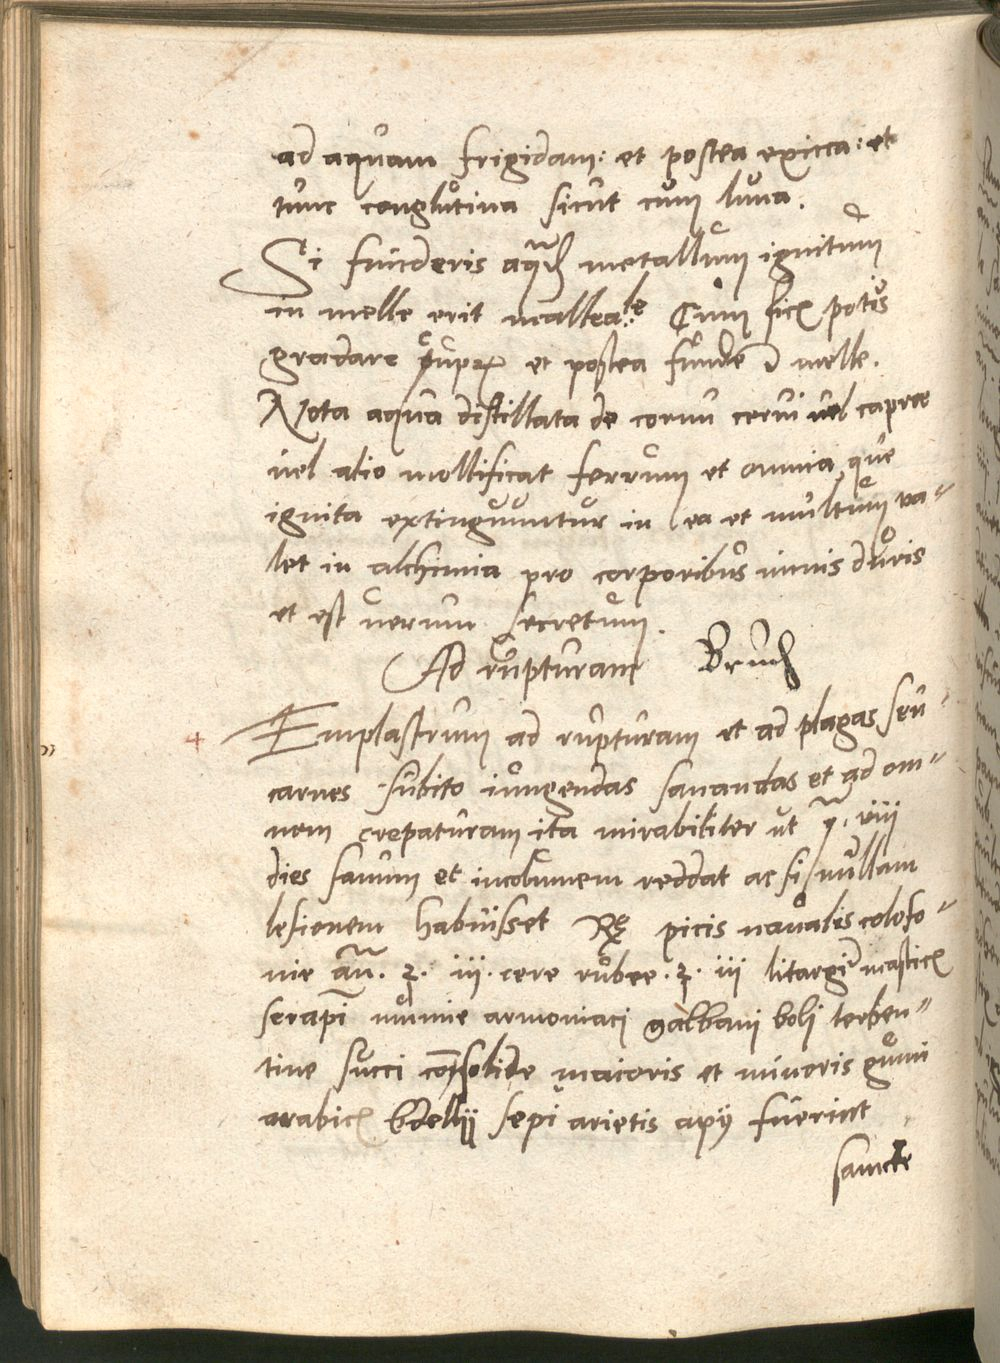 ad aquam frigidam: et postea exicca: et
tunc conglutina sicut cum luna.
Si funderis aq̃d metallum ignitum
in melle erit malleabłe Cum sicꝫ potis
gradare cuprꝫ et postea funde ī melle.
Nota aqua distillata de cornu cerui uel caprae
uel alio mollificat ferrum et omnia que
ignita extinguuntur in ea et multum va⸗
let in alchimia pro corporibus nimis duris
et est uerum secretum.
Ad rupturam Bruch
Emplastrum ad rupturam et ad plagas seu
carnes subito iungendas sanandas et ad om⸗
nem crepaturam ita mirabiliter ut viii
dies sanum et incolumem reddat ac si nullam
lesionem habuisset Rꝫ picis naualis colofo⸗
nie añ. ℥. iii. cere rubee. ℥. iii litargiri masticꝫ
serapī mumie armoniaci galbani boli terben⸗
tine succi cōsolide maioris et minoris gumi
arabicꝫ bdellij sepi arietis apij fuerint
sancte